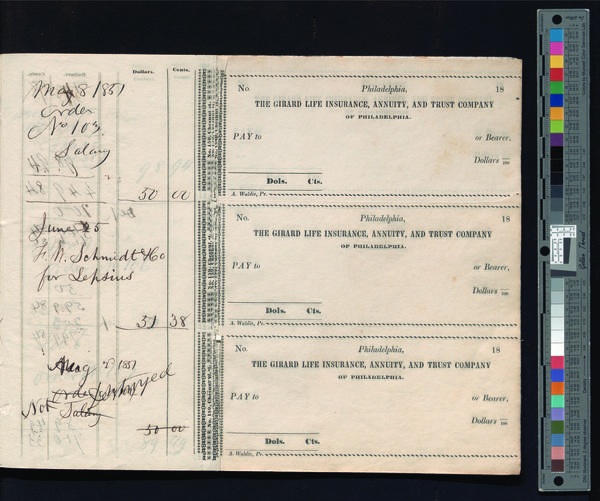 Dollars. Cents.
May 8 1851
Order
No 103.
Salary
50 00
June 25
F. W. Schmidt & Co
for Lepsius
31 38
Aug 1851
Order destroyed
Not
Salary
50 00
No. Philadelphia, 18
THE GIRARD LIFE INSURANCE, ANNUITY, AND TRUST COMPANY
OF PHILADELPHIA.
PAY to or Bearer,
Dollars /100
Dols. Cts.
A. Waldie, Pr.
No. Philadelphia, 18
THE GIRARD LIFE INSURANCE, ANNUITY, AND TRUST COMPANY
OF PHILADELPHIA.
PAY to or Bearer,
Dollars /100
Dols. Cts.
A. Waldie, Pr.
No. Philadelphia, 18
THE GIRARD LIFE INSURANCE, ANNUITY, AND TRUST COMPANY
OF PHILADELPHIA.
PAY to or Bearer,
Dollars /100
Dols. Cts.
A. Waldie, Pr.